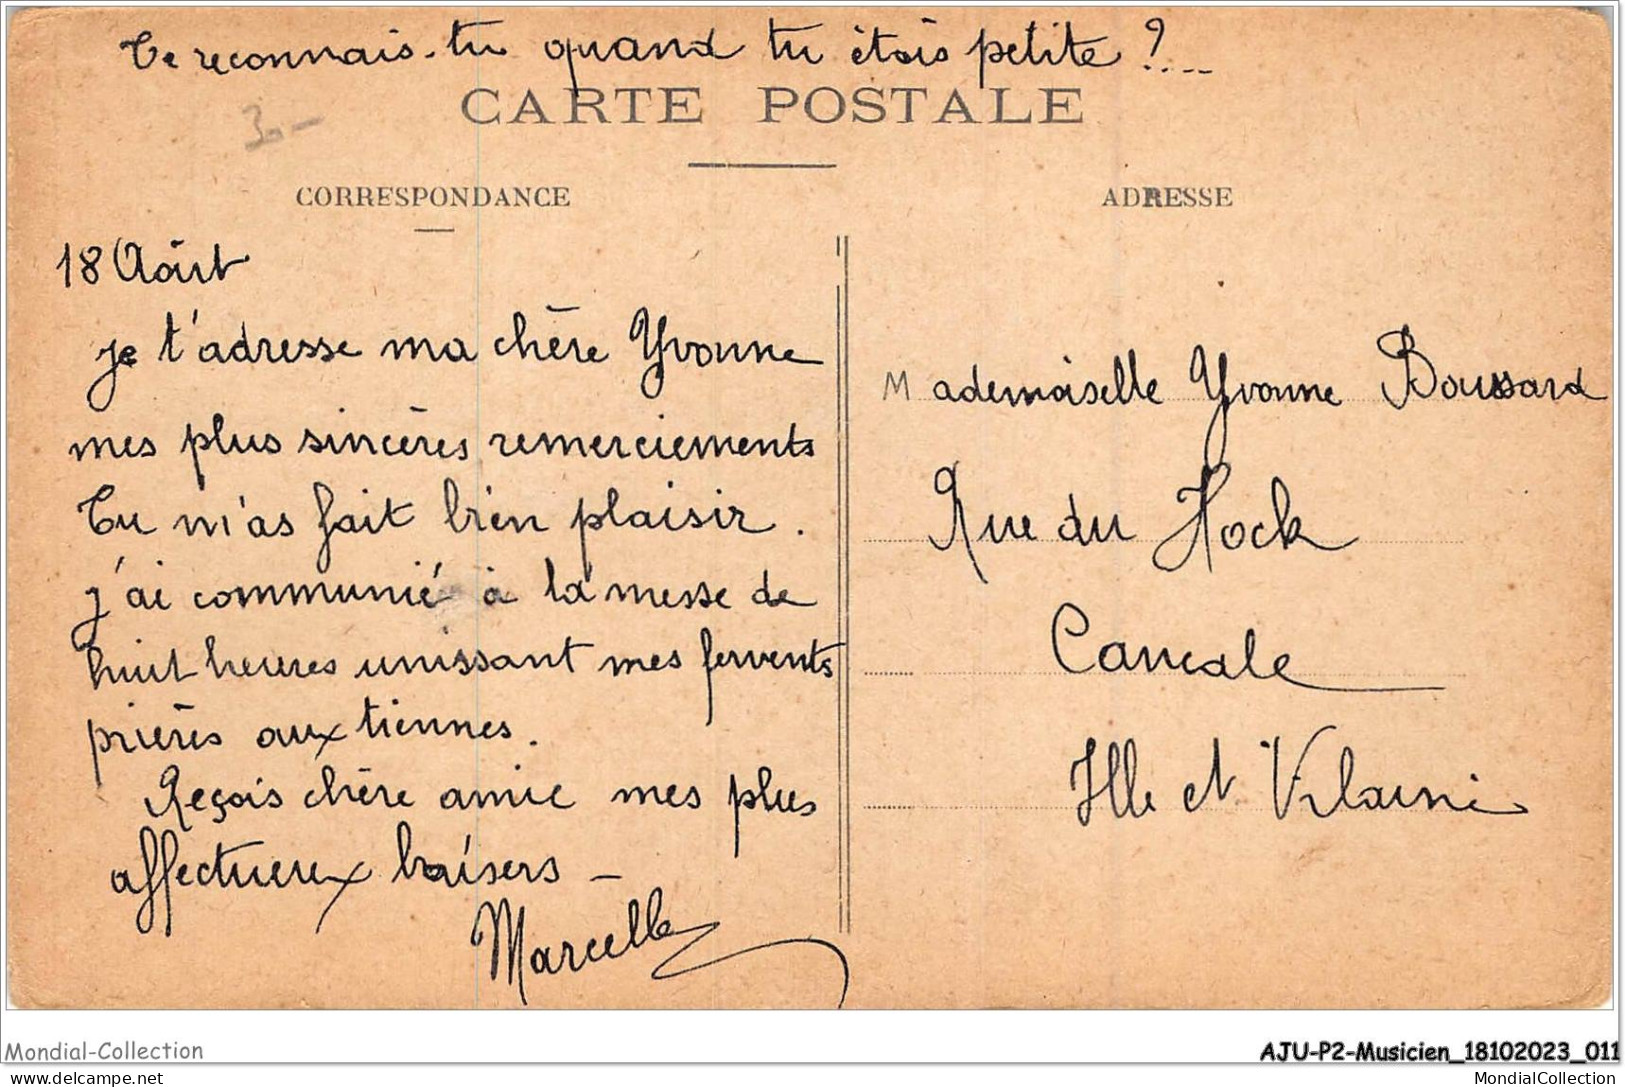 Te reconnais-tu quand tu étais petite ?...
CARTE POSTALE
30-
CORRESPONDANCE
ADRESSE
18 Août
je t'adresse ma chère Yvonne
mes plus sincères remerciements
Tu m'as fait bien plaisir.
j'ai communié à la messe de
huit heures unissant mes fervents
prières aux tiennes.
Reçois chère amie mes plus
affectueux baisers -
Marcelle
Mademoiselle Yvonne Boussard
Rue du Hock
Cancale
Ille et Vilaine
Mondial-Collection
AJU-P2-Musicien_18102023_011
www.delcampe.net
MondialCollection